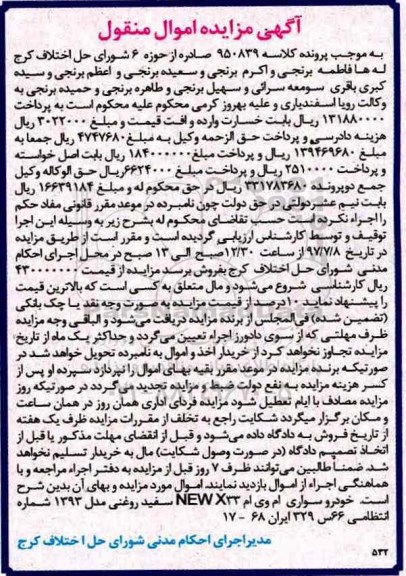 آگهی مزایده اموال منقول
به موجب پرونده کلاسه ۹۵۰۸۳۹ صادره از حوزه ۶ شورای حل اختلاف کرج
له ها فاطمه برنجی و اکرم برنجی و سعیده برنجی و اعظم برنجی و سیده
کبری باقری سومعه سرائی و سهیل برنجی و طاهره برنجی و حمیده برنجی به
وکالت رویا اسفندیاری و علیه بهروز کرمی محکوم علیه محکوم است به پرداخت
۱۳۱۸۸۰۰۰۰ ریال بابت خسارت وارده و افت قیمت و مبلغ ۳۰۲۲۰۰۰ ریال
هزینه دادرسی و پرداخت حق الزحمه وکیل به مبلغ ۴۷۴۷۶۸۰ ریال جمعا به
مبلغ ۱۳۹۴۶۹۶۸۰ ریال و پرداخت مبلغ ۱۸۴۰۰۰۰۰۰ ریال بابت اصل خواسته
و پرداخت ۲۵۱۰۰۰۰ ریال و پرداخت مبلغ ۶۶۲۴۰۰۰ ریال حق الوکاله وکیل
جمع دو پرونده ۳۳۱۷۸۳۶۸۰ ریال در حق محکوم له و مبلغ ۱۶۶۳۹۱۸۴ ریال
بابت نیم عشر دولتی در حق دولت چون نامبرده در موعد مقرر قانونی مفاد حکم
را اجراء نکرده است حسب تقاضای محکوم له بشرح زیر به وسیله این اجرا
توقیف و توسط کارشناس ارزیابی گردیده است و مقرر است از طریق مزایده
در تاریخ ۹۷/۷/۸ از ساعت ۱۲/۳۰ صبح الی ۱۳ صبح در محل اجرای احکام
مدنی شورای حل اختلاف کرج بفروش برسد مزایده از قیمت ۴۳۰۰۰۰۰۰۰
ریال کارشناسی شروع می‌شود و مال متعلق به کسی است که بالاترین قیمت
را پیشنهاد نماید ۱۰ درصد از قیمت مزایده به صورت وجه نقد یا چک بانکی
(تضمین شده) فی المجلس از برنده مزایده دریافت می‌شود و الباقی وجه مزایده
ظرف مهلتی که از سوی دادورز اجراء تعیین می‌گردد و حداکثر یک ماه از تاریخ
مزایده تجاوز نخواهد کرد از خریدار اخذ و اموال به نامبرده تحویل خواهد شد در
صورتیکه برنده مزایده در موعد مقرر بقیه بهای اموال را نپردازد سپرده او پس از
کسر هزینه مزایده به نفع دولت ضبط و مزایده تجدید می‌گردد در صورتیکه روز
مزایده مصادف با ایام تعطیل شود مزایده فردای اداری همان روز در همان ساعت
و مکان برگزار میگردد شکایت راجع به تخلف از مقررات مزایده ظرف یک هفته
از تاریخ فروش به دادگاه داده می‌شود و قبل از انقضای مهلت مذکور یا قبل از
اتخاذ تصمیم دادگاه (در صورت وصول شکایت) مال به خریدار تسلیم نخواهد
شد. ضمنا طالبین می‌توانند ظرف ۷ روز قبل از مزایده به دفتر اجراء مراجعه و با
هماهنگی اجراء از اموال بازدید نمایند. اموال مورد مزایده و بهای آن بدین شرح
است. خودرو سواری ام وی ام NEW X۳۳ سفید روغنی مدل ۱۳۹۳ شماره
انتظامی ۶۶س ۳۲۹ ایران ۶۸ - ۱۷
مدیر اجرای احکام مدنی شورای حل اختلاف کرج
۵۳۲